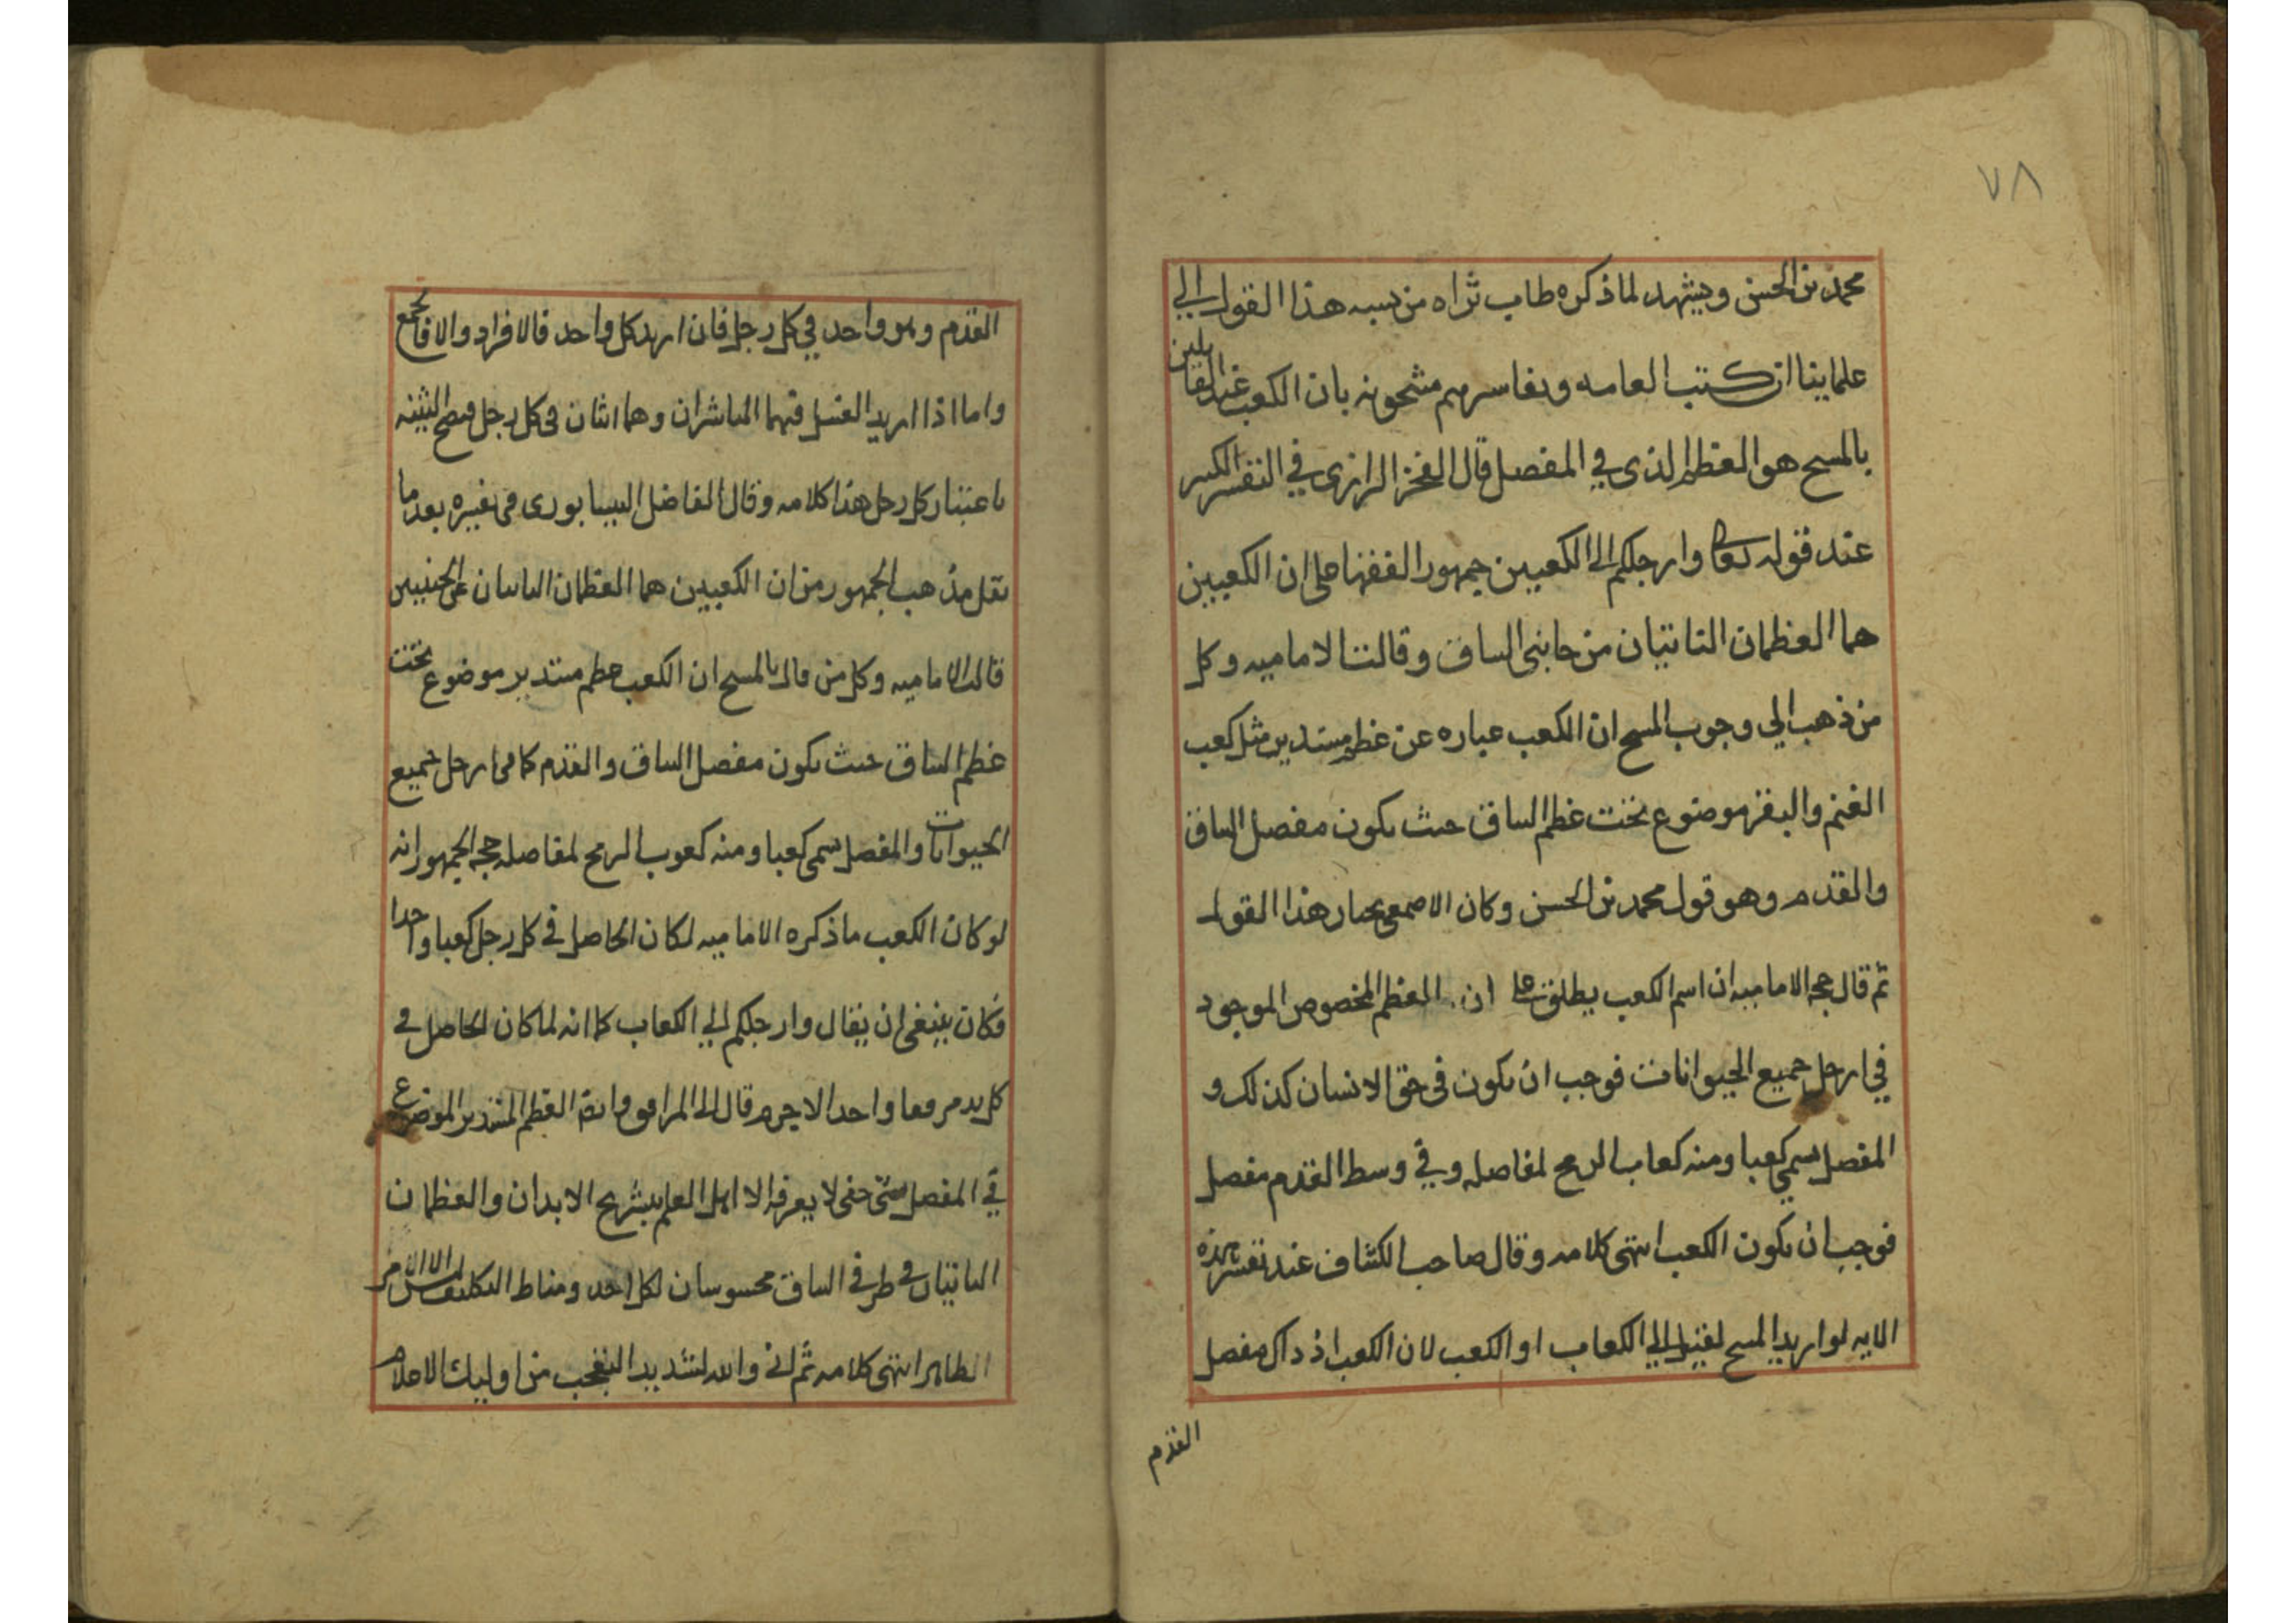 ٧٨
محمد بن الحسن ويشهد لما ذكره طاب ثراه من نسبه هذا القول الى
علماينا ان كتب العامه وتفاسرهم مشحونه بان الكعب عند القايلين
بالمسح هو العظم الذى في المفصل قال الفخر الرازى في التفسير الكبير
عند قوله تعالى وارجلكم الى الكعبين جمهور الفقها على ان الكعبين
هما العظمان الناتيان من جانبى الساق وقالت الاماميه وكل
من ذهب الي وجوب المسح ان الكعب عباره عن عظم مستدير مثل كعب
الغنم والبقر موضوع تحت عظم الساق حيث يكون مفصل الساق
والقدم وهو قول محمد بن الحسن وكان الاصمعى يختار هذا القول
ثم قال حجه الاماميه ان اسم الكعب يطلق على ان العظم المخصوص الموجود
في ارجل جميع الحيوانات فوجب ان يكون في حق الانسان كذلك و
المفصل يسمى كعبا ومنه كعاب الرمح لمفاصله وفي وسط القدم مفصل
فوجب ان يكون الكعب انتهى كلامه وقال صاحب الكشاف عند تفسير هذه
الايه لو اريد المسح لقيل الي الكعاب او الكعب لان الكعب اذ ذاك مفصل
القدم
القدم وهو واحد في كل رجل فان اريد كل واحد فالافراد والا فالجمع
واما اذا اريد الغسل فهما الناشزان وهما اثنان في كل رجل فصح التثنيه
باعتبار كل رجل هذا كلامه وقال الفاضل النيسابورى في تفسيره بعد ما
نقل مذهب الجمهور من ان الكعبين هما العظمان الناتيان عن الجنبين
قالت الاماميه وكل من قال بالمسح ان الكعب عظم مستدير موضوع تحت
عظم الساق حيث يكون مفصل الساق والقدم كما في ارجل جميع
الحيوانات والمفصل يسمى كعبا ومنه كعوب الرمح لمفاصله حجه الجمهور انه
لو كان الكعب ما ذكره الاماميه لكان الحاصل في كل رجل كعبا واحدا
فكان ينبغى ان يقال وارجلكم الي الكعاب كما انه لما كان الحاصل في
كل يد مرفعا واحدا لا جرم قال الى المرافق وايضا العظم المستدير الموضوع
في المفصل شى خفى لا يعرفه الا اهل العلم بتشريح الابدان والعظمان
الناتيان في طرفي الساق محسوسان لكل احد ومناط التكليف ليس الا الامر
الظاهر انتهى كلامه ثم انى والله لشديد التعجب من اوليك الاعلام